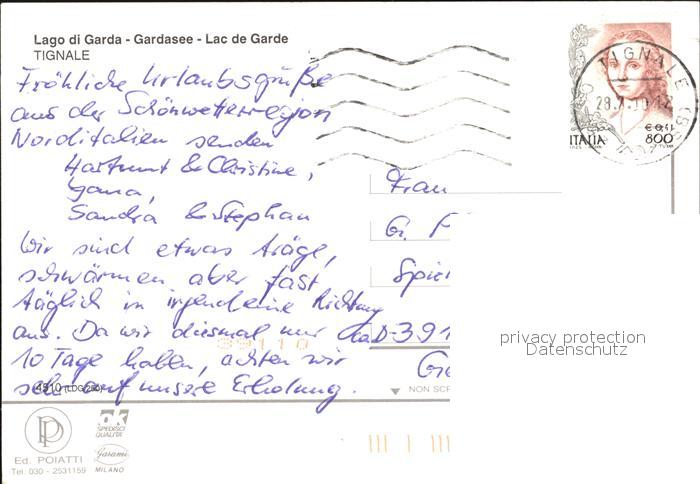 Lago di Garda - Gardasee - Lac de Garde
TIGNALE
Fröhliche Urlaubsgrüße
aus der Schönwetterregion
Norditalien senden
Hartmut & Christine,
Sandra & Stephan
Wir sind etwas träge,
schwärmen aber fast
täglich in irgendeine Richtung
aus. Da wir diesmal nur ca
10 Tage haben, achten wir
sehr auf unsere Erholung.
TIGNALE
28.7.
ITALIA
€ 0,41
800
Frau
G.
D-391
39110
NON SCR
privacy protection
Datenschutz
Ed. POIATTI
Tel. 030 - 2531159
ok
SPEDISCI
QUALITA'
Garami
MILANO